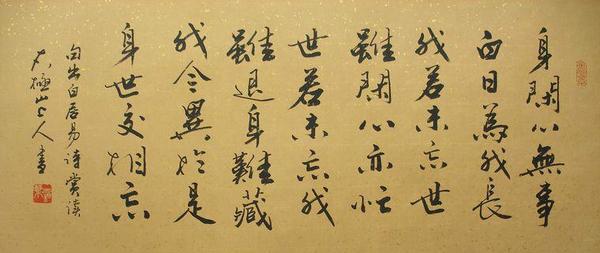 身閑心無事
白日為我長
我若未忘世
雖閑心亦忙
世若未忘我
雖退身難藏
我今異於是
身世交相忘
句出白居易诗赏读
極山人書